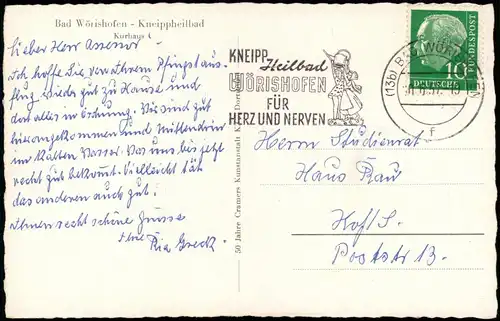 Bad Wörishofen - Kneippheilbad
Kurhaus 4
Lieber Herr Assessor
Ich hoffe Sie von Ihrem Pfingstaus-
flug wieder gut zu Hause und
dort alles in Ordnung. Wir sind gut
hier angekommen und mittendrin
im kalten Wasser. Das uns bis jetzt
recht gut bekommt. Vielleicht tät
das anderen auch gut.
Ihnen recht schöne Grüsse
Ihre
Ria Greck
50 Jahre Cramers Kunstanstalt
KNEIPP
Heilbad
WÖRISHOFEN
FÜR
HERZ UND NERVEN
(13b) BAD WÖRISHOFEN
f
DEUTSCHE
BUNDESPOST
10
Herrn Studienrat
Haus Rau
Hof/S.
Poststr. 13.